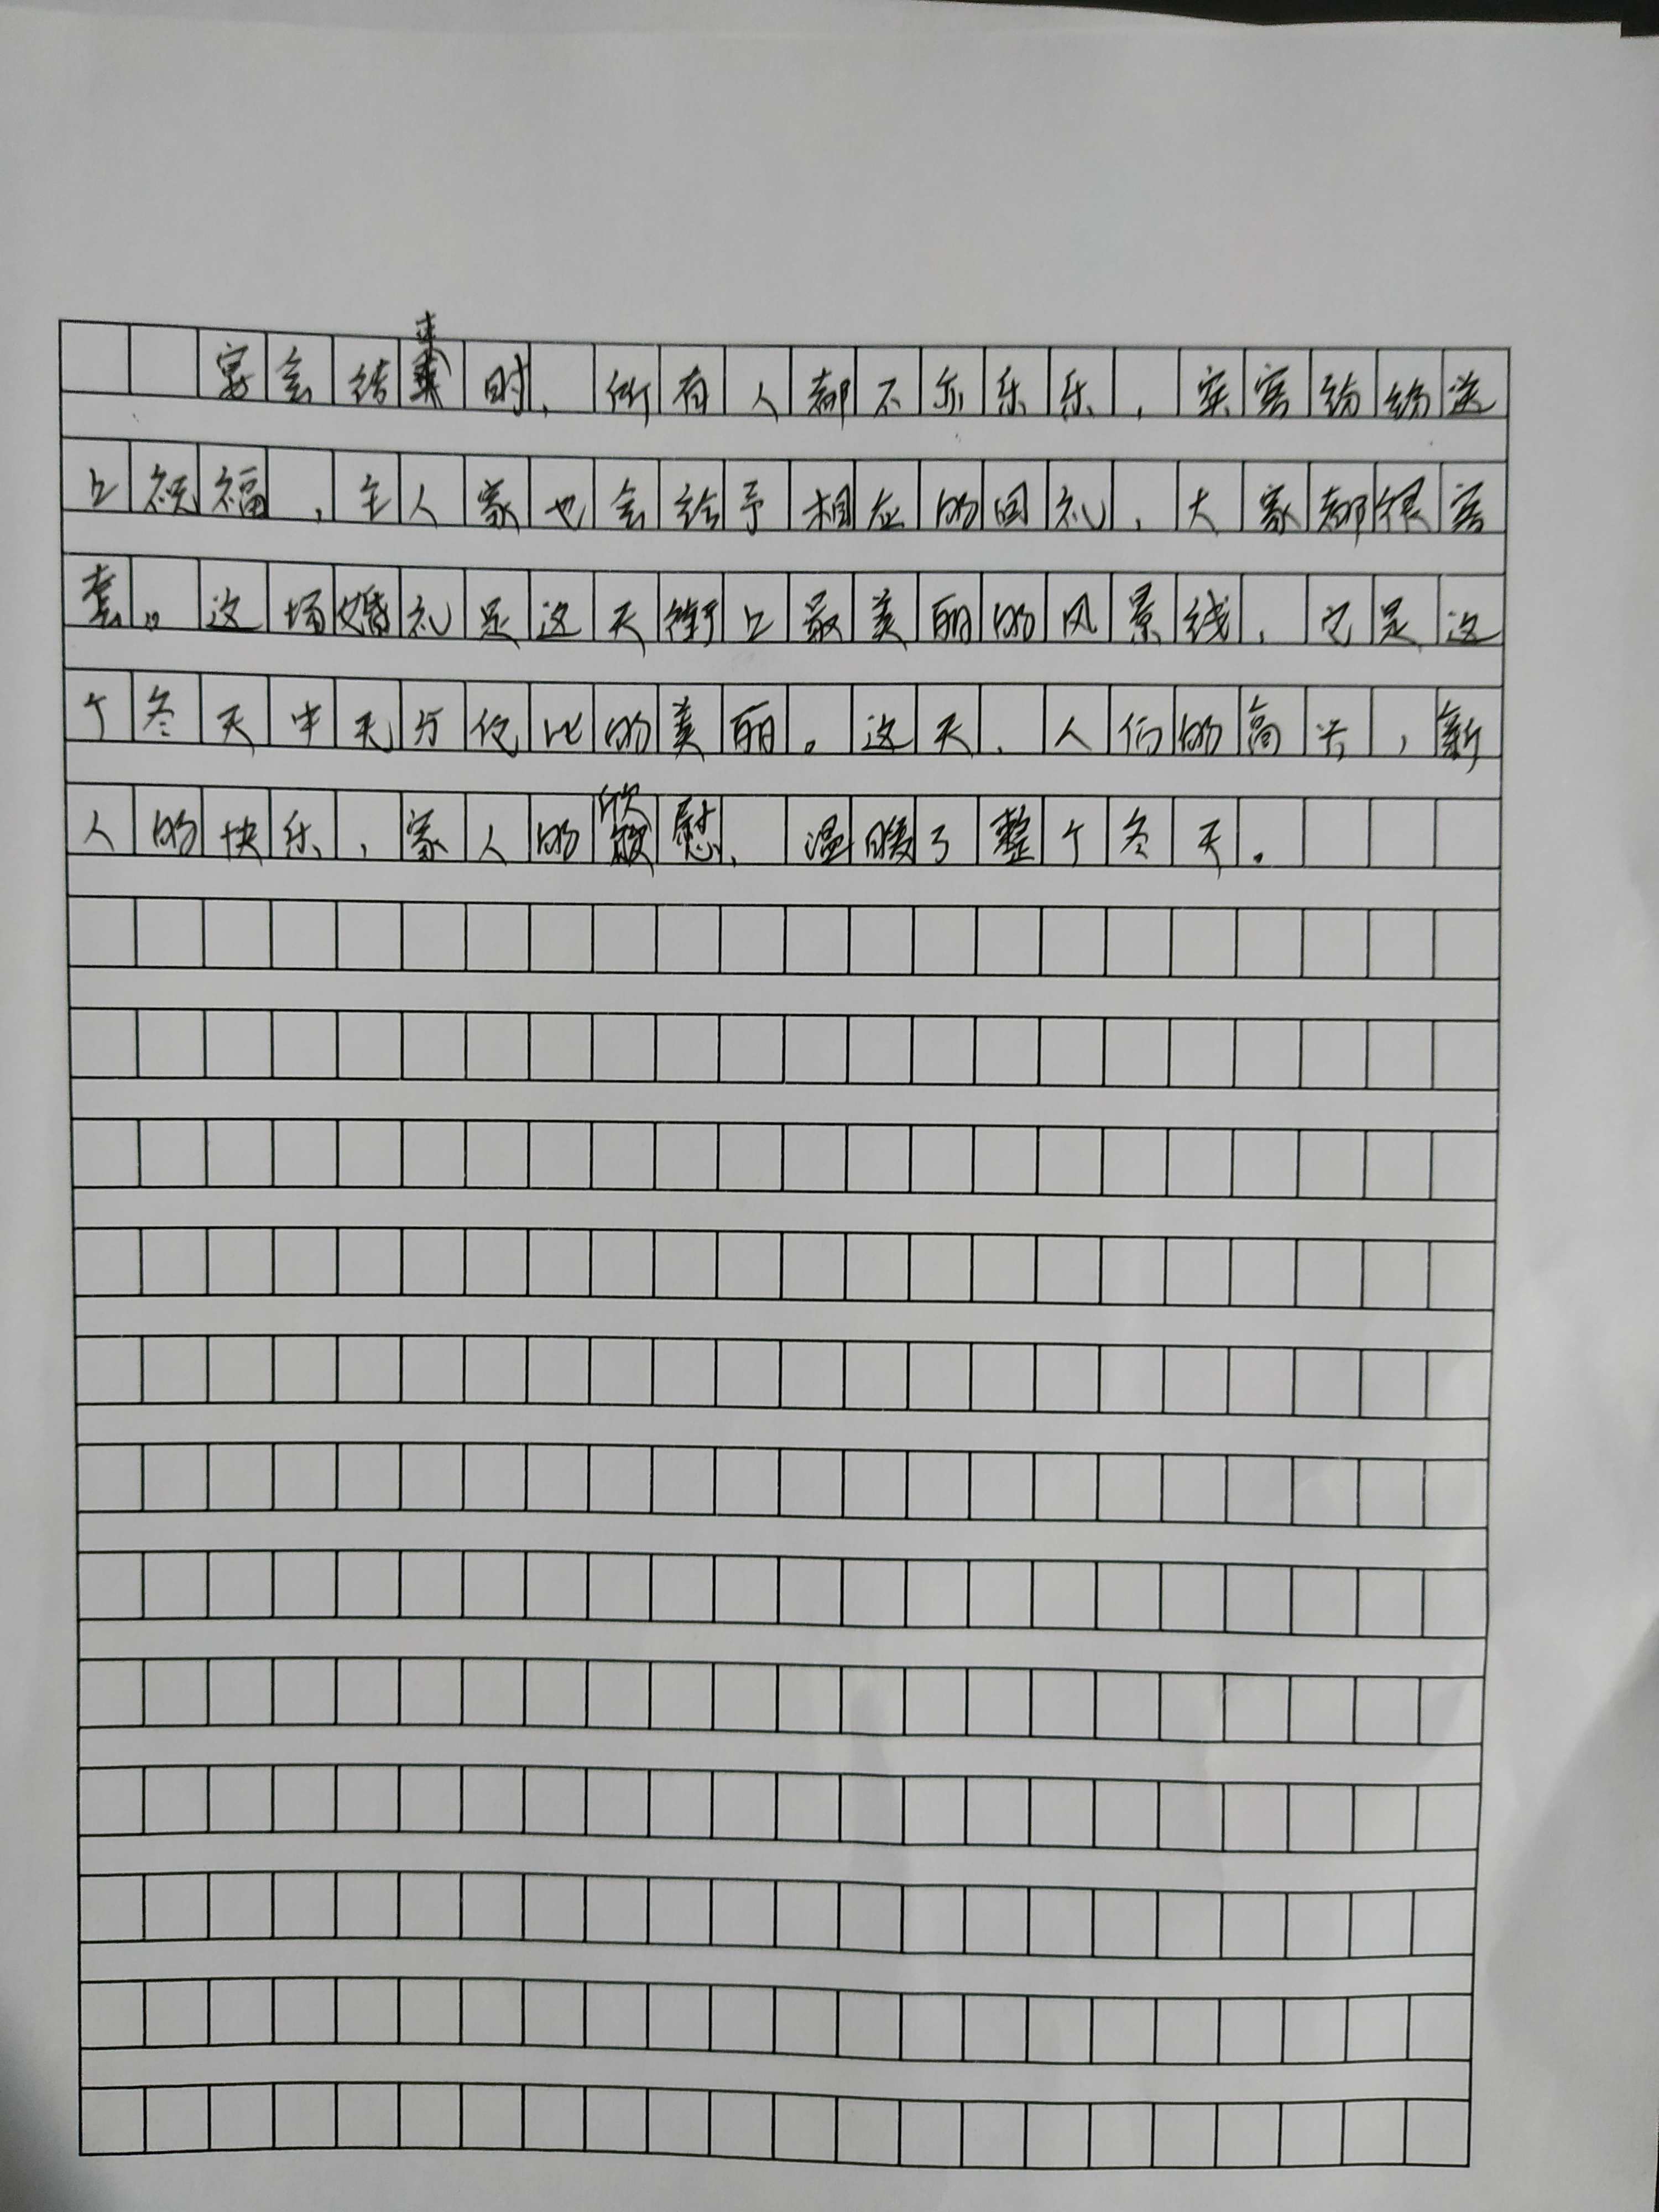 宴会结束时，所有人都不亦乐乐，宾客纷纷送
上祝福，主人家也会给予相应的回礼，大家都很客
套。这场婚礼是这天街上最美丽的风景线，它是这
个冬天中无与伦比的美丽。这天，人们的高兴，新
人的快乐，家人的欣慰，温暖了整个冬天。